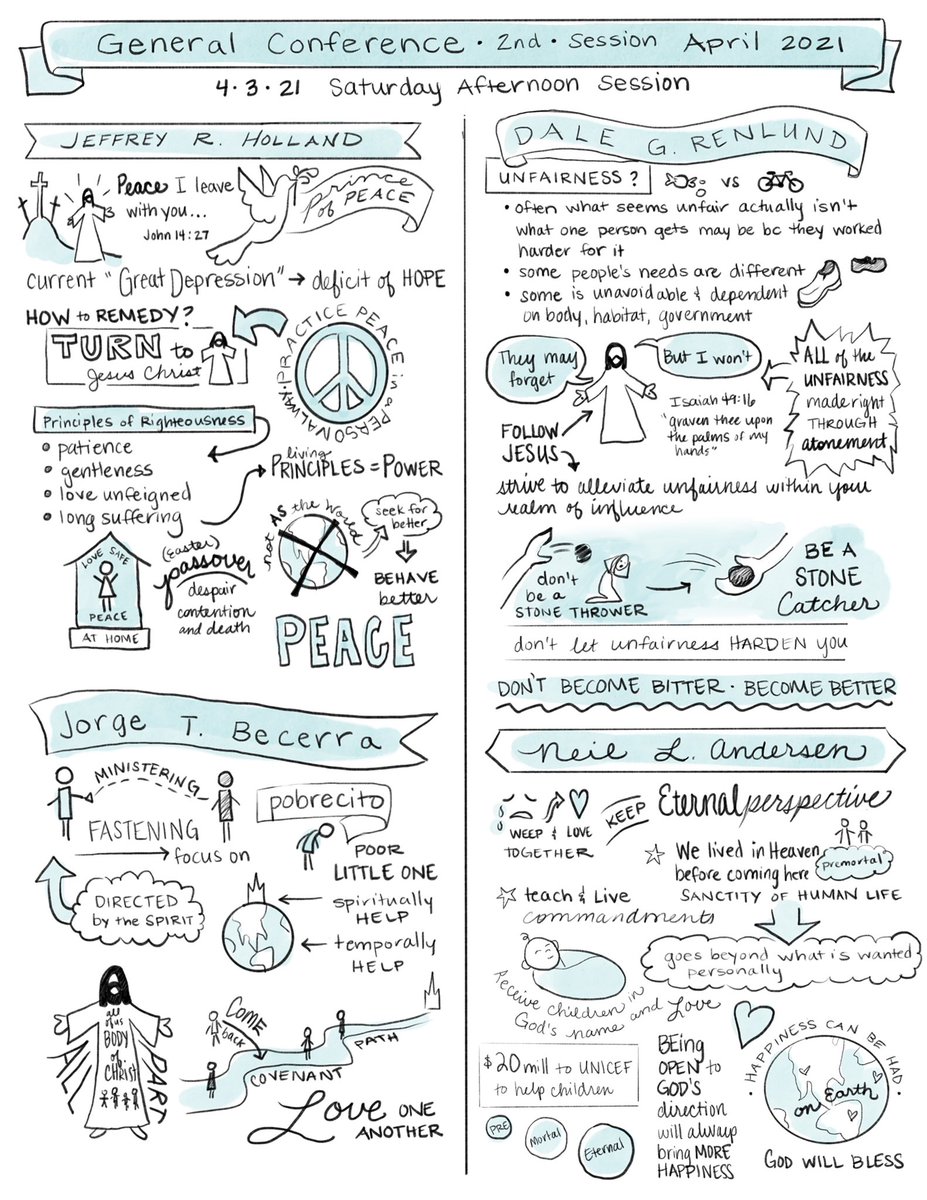 General Conference · 2nd · Session April 2021
4·3·21 Saturday Afternoon Session
JEFFREY R. HOLLAND
Peace I leave
with you...
John 14:27
Prince
of PEACE
current "Great Depression" → deficit of HOPE
HOW to REMEDY?
TURN to
Jesus Christ
PRACTICE PEACE in a PERSONAL WAY
Principles of Righteousness
• patience
• gentleness
• love unfeigned
• long suffering
living
PRINCIPLES = POWER
LOVE SAFE
PEACE
AT HOME
(Easter)
passover
despair
contention
and death
not AS the World
seek for
better
BEHAVE
better
PEACE
Jorge T. Becerra
MINISTERING
FASTENING
focus on
DIRECTED
by the SPIRIT
pobrecito
POOR
LITTLE ONE
spiritually
HELP
temporally
HELP
all of us
BODY
of
CHRIST
PART
COME
back
COVENANT
PATH
Love ONE
ANOTHER
DALE G. RENLUND
UNFAIRNESS?
VS
• often what seems unfair actually isn't
what one person gets may be bc they worked
harder for it
• some people's needs are different
• some is unavoidable & dependent
on body, habitat, government
They may
forget
But I won't
Isaiah 49:16
"graven thee upon
the palms of my
hands"
ALL of the
UNFAIRNESS
made right
THROUGH
atonement
FOLLOW
JESUS
strive to alleviate unfairness within your
realm of influence
don't
be a
STONE THROWER
BE A
STONE
Catcher
don't let unfairness HARDEN you
DON'T BECOME BITTER · BECOME BETTER
Neil L. Andersen
WEEP & LOVE
TOGETHER
KEEP
Eternal perspective
We lived in Heaven
before coming here
premortal
SANCTITY OF HUMAN LIFE
teach & Live
commandments
goes beyond what is wanted
personally
Receive children in
God's name and Love
$20 mill to UNICEF
to help children
PRE
Mortal
Eternal
BEing
OPEN to
GOD'S
direction
will always
bring MORE
HAPPINESS
· HAPPINESS CAN BE HAD ·
on Earth
GOD WILL BLESS